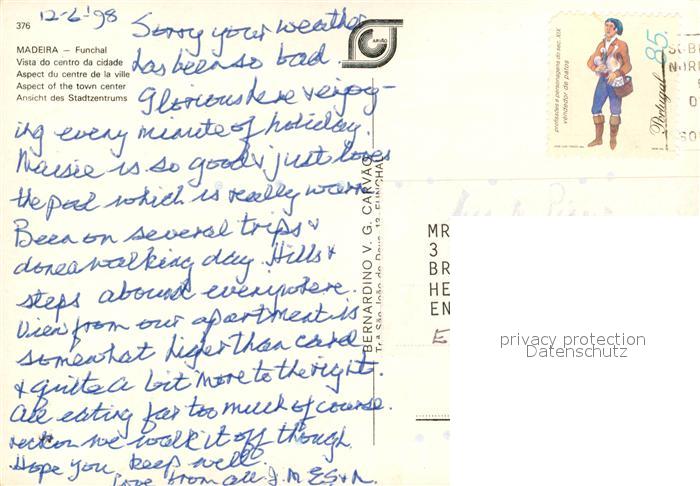 376
12-6-98
MADEIRA – Funchal
Vista do centro da cidade
Aspect du centre de la ville
Aspect of the town center
Ansicht des Stadtzentrums
Sorry your weather
has been so bad.
Glorious here & enjoy-
ing every minute of holiday.
Maisie is so good & just loves
the pool which is really warm.
Been on several trips &
done a walking day. Hills &
steps abound everywhere.
View from our apartment is
somewhat higer than card
& quite a bit more to the right.
All eating far too much of course.
reckon we walk it off though.
Hope you keep well.
Love from all. J. M E S & A.
BERNARDINO V. G. CARVÃO
Tr.ª São João de Deus, 13 FUNCHAL
profissões e personagens do séc. XIX
vendedor de patos
85.
Portugal
MR
3
BR
HE
EN
E
privacy protection
Datenschutz